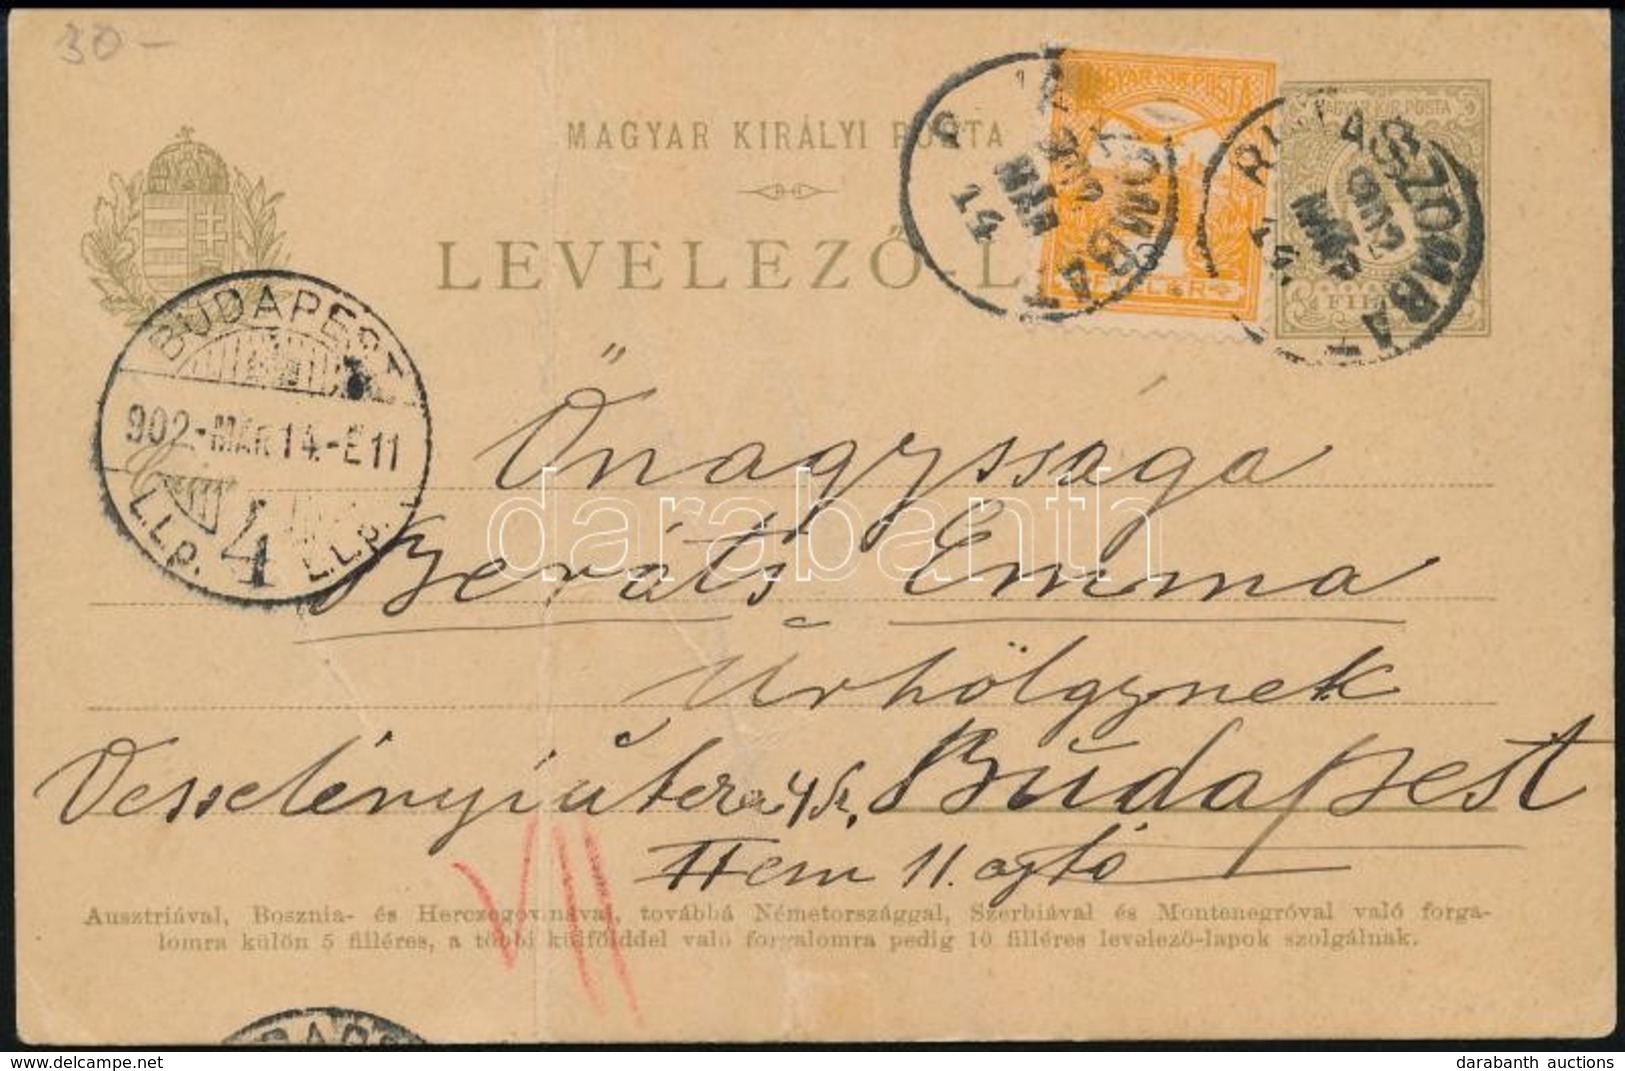 30-
MAGYAR KIRÁLYI POSTA
LEVELEZŐ-L
MAGYAR KIR. POSTA
FILLÉR
MAGYAR KIR. POSTA
RIMASZOMBAT
902 MAR 14
BUDAPEST
902-MÁR 14.-E 11
L.L.p. 4 L.L.p.
Őnagysága
Emma
Úrhölgynek
Vesselényi útcza 4 Budapest
II em 11. ajtó
VII
Ausztriával, Bosznia- és Herczegovinával, továbbá Németországgal, Szerbiával és Montenegróval való forga-
lomra külön 5 filléres, a többi külfölddel való forgalomra pedig 10 filléres levelező-lapok szolgálnak.
darabanth
delcampe.net
darabanth auctions